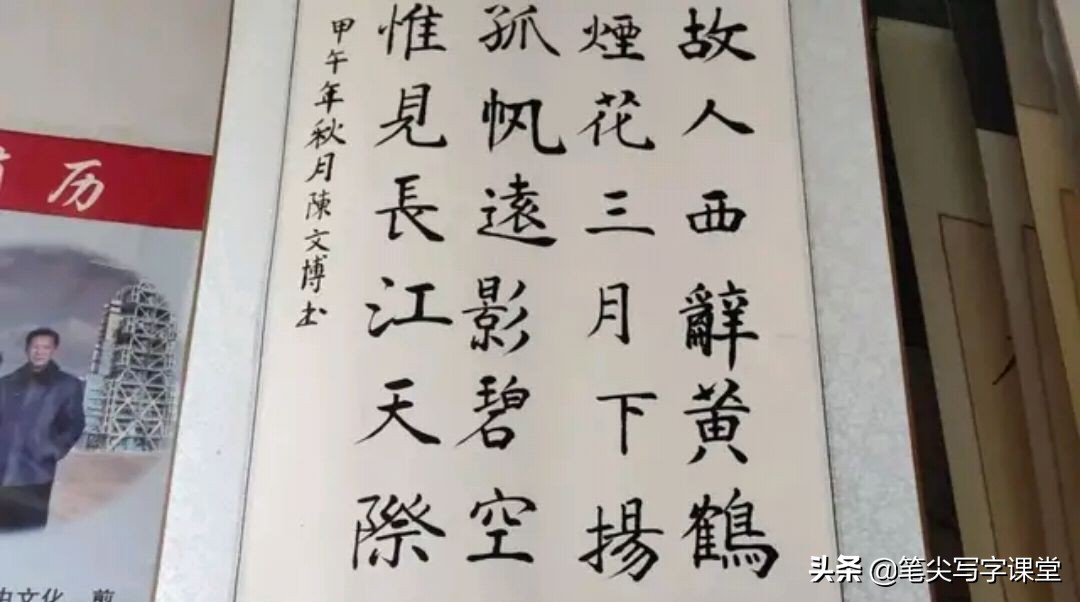 故人西辭黄鶴
煙花三月下揚
孤帆遠影碧空
惟見長江天際
甲午年秋月陳文博书
历
文化
头条 @笔尖写字课堂